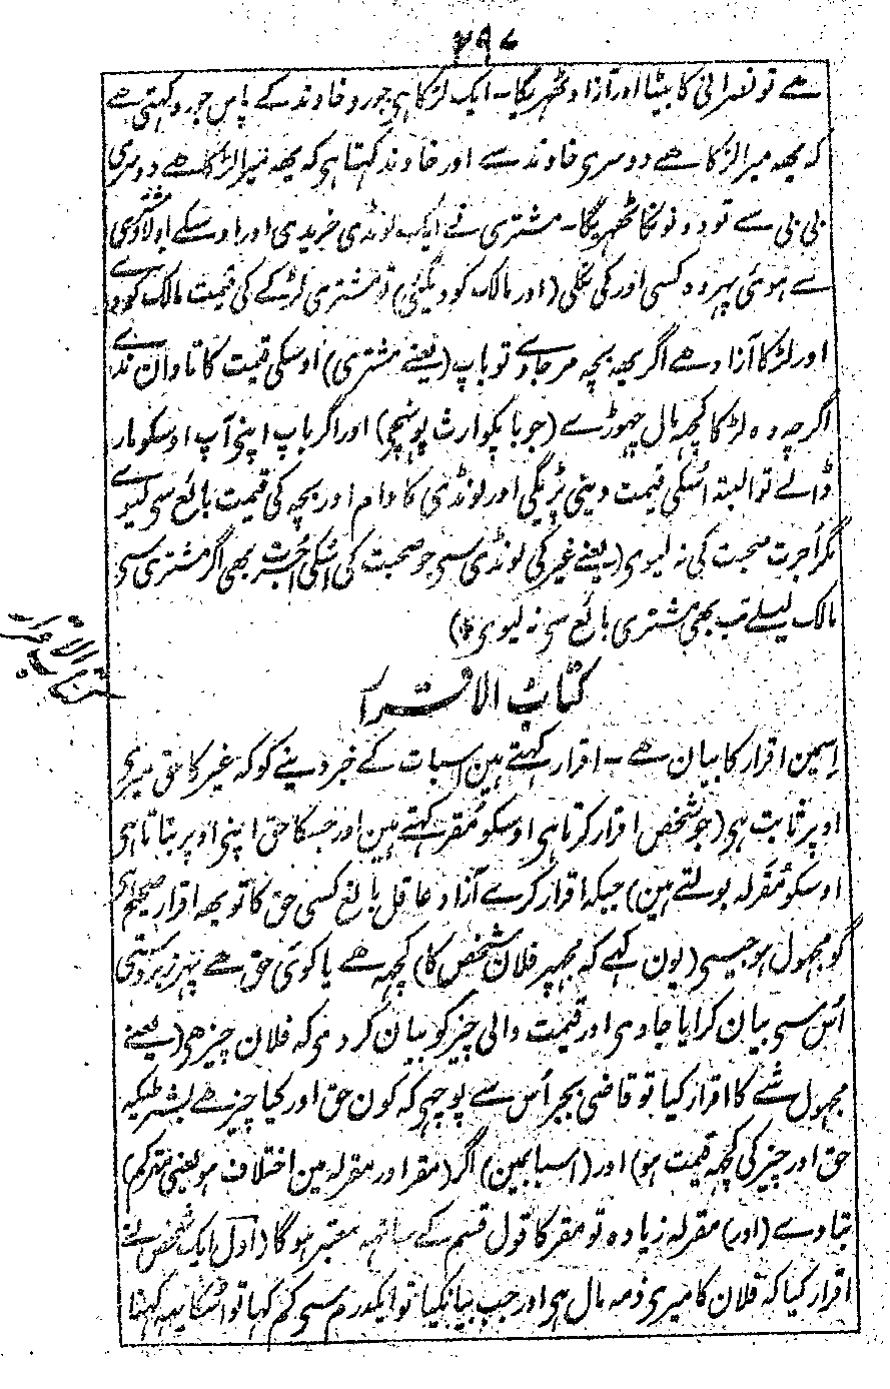 ۲۹۷
ھے تو نصرانی کا بیٹا اور آزاد ٹھہریگا۔ ایک لڑکا ہی جورو خاوند کے پاس جورو کہتی ھے
کہ یھہ میرا لڑکا ھے دوسری خاوند سے اور خاوند کہتا ہی کہ یھہ میرا لڑکا ھے دوسری
بی بی سے تو دونونکا ٹھہریگا۔ مشتری نے ایک لونڈی خریدی اور اوسکے اولاد مشتری
سے ہوئی پہر وہ کسی اور کی نکلی (اور مالک کو دیگئی) تو مشتری لڑکے کی قیمت مالک کو دے
اور لڑکا آزاد ھے اگر یھہ بچہ مرجاوے تو باپ (یعنے مشتری) اوسکی قیمت کا تاوان ندے
اگرچہ وہ لڑکا کچہ مال چہوڑے (جو باپکو ارث پہنچی) اور اگر باپ اپنی آپ اوسکو مار
ڈالے تو البتہ اُسکی قیمت دینی پڑیگی اور لونڈی کا دام اور بچہ کی قیمت بائع سی لیوے
مگر اُجرت صحبت کی نہ لیوی (یعنے غیر کی لونڈی سی جو صحبت کی اُسکی اُجرت بھی اگر مشتری سی
مالک لیلے تب بھی مشتری بائع سی نہ لیوی)
کتاب الاقرار
کتاب الاقرار
اِسمین اقرار کا بیان ھے۔ اقرار کہتے ہین اسبات کے خبر دینے کو کہ غیر کا حق میری
اوپر ثابت ہی (جو شخص اقرار کرتا ہی اوسکو مُقر کہتے ہین اور جسکا حق اپنی اوپر بتاتا ہی
اوسکو مُقَرلہ بولتے ہین) جبکہ اقرار کرے آزاد عاقل بالغ کسی حق کا تو یھہ اقرار صحیح ہی
گو مجہول ہو جیسی (یون کہے کہ مجہپر فلان شخص کا) کچہہ ھے یا کوئی حق ھے پہر زبردستی
اُس سی بیان کرایا جاوی اور قیمت والی چیز کو بیان کردی کہ فلان چیز ھی (یعنے
مجہول شے کا اقرار کیا تو قاضی بجبر اُس سے پوچہی کہ کون حق اور کیا چیز ھے بشرطیکہ
حق اور چیز کی کچہہ قیمت ہو) اور (اسبابمین) اگر (مقر اور مقرلہ مین اختلاف ہو یعنی مقر کم)
بتاوے (اور) مقرلہ زیادہ تو مقر کا قول قسم کے ساتہہ معتبر ہوگا (اول ایک شخص نے
اقرار کیا کہ فلان کا میری ذمہ مال ہی اور جب بیانکیا تو ایکدرم سی کم کہا تو اُسکا یہہ کہنا